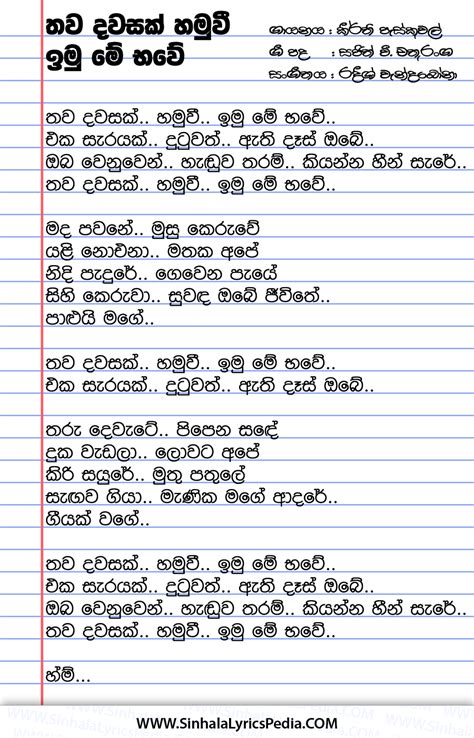 තව දවසක් හමුවී
ඉමු මේ භවේ
ගායනය : කීර්ති පැස්කුවල්
ගී පද : සජිත් වී. චතුරංග
සංගීතය : රදීශ් වැන්දබෝනා
තව දවසක්.. හමුවී.. ඉමු මේ භවේ..
එක සැරයක්.. දුටුවත්.. ඇති දෑස් ඔබේ..
ඔබ වෙනුවෙන්.. හැඬුව තරම්.. කියන්න හීන් සැරේ..
තව දවසක්.. හමුවී.. ඉමු මේ භවේ..
මද පවනේ.. මුසු කෙරුවේ
යළි නොඑනා.. මතක අපේ
නිදි පැදුරේ.. ගෙවෙන පැයේ
සිහි කෙරුවා.. සුවඳ ඔබේ ජීවිතේ..
පාළුයි මගේ..
තව දවසක්.. හමුවී.. ඉමු මේ භවේ..
එක සැරයක්.. දුටුවත්.. ඇති දෑස් ඔබේ..
තරු දෙවැටේ.. පිපෙන සඳේ
දුක වැඩලා.. ලොවට අපේ
කිරි සයුරේ.. මුතු පතුලේ
සැඟව ගියා.. මැණික මගේ ආදරේ..
ගීයක් වගේ..
තව දවසක්.. හමුවී.. ඉමු මේ භවේ..
එක සැරයක්.. දුටුවත්.. ඇති දෑස් ඔබේ..
ඔබ වෙනුවෙන්.. හැඬුව තරම්.. කියන්න හීන් සැරේ..
තව දවසක්.. හමුවී.. ඉමු මේ භවේ..
හ්ම්...
www.SinhalaLyricsPedia.COM